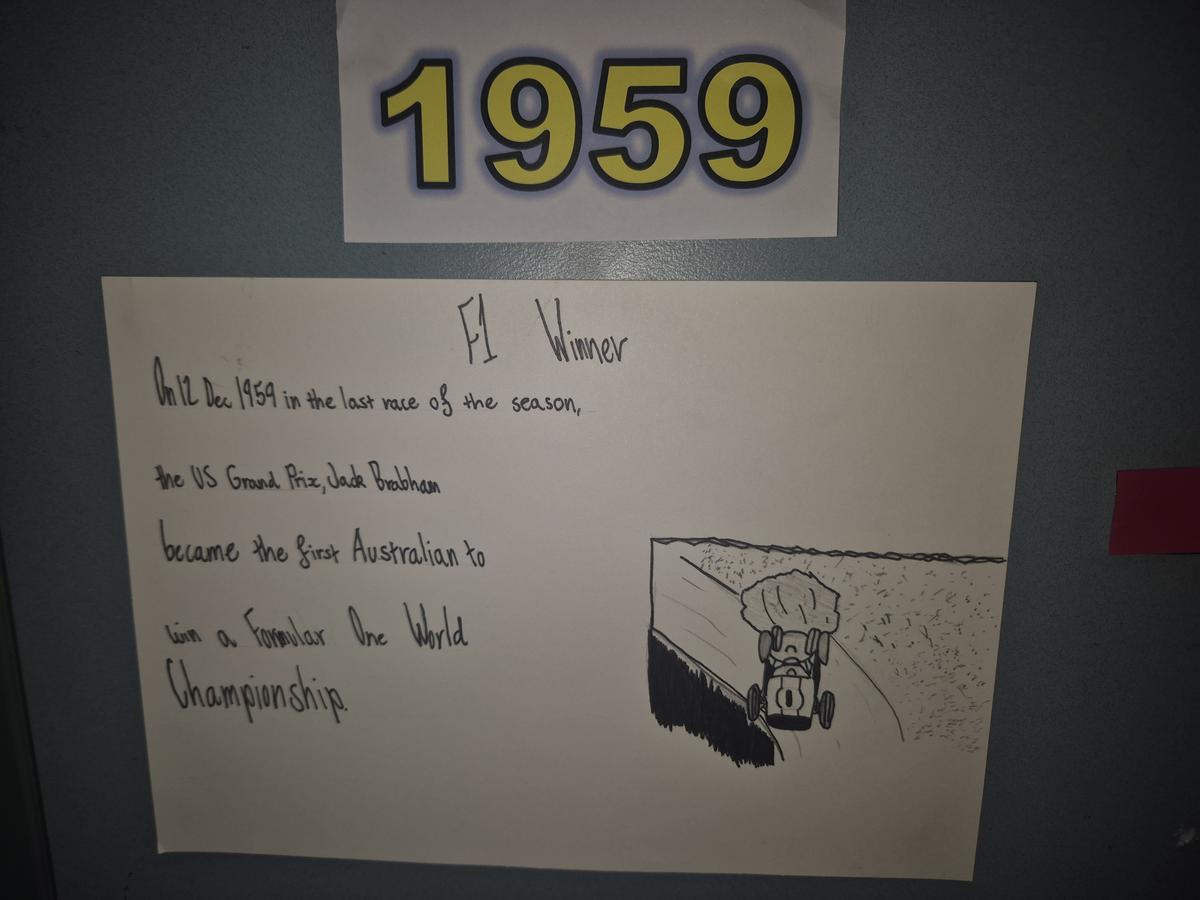 1959
F1 Winner
On 12 Dec 1959 in the last race of the season,
the US Grand Prix, Jack Brabham
became the first Australian to
win a Formular One World
Championship.